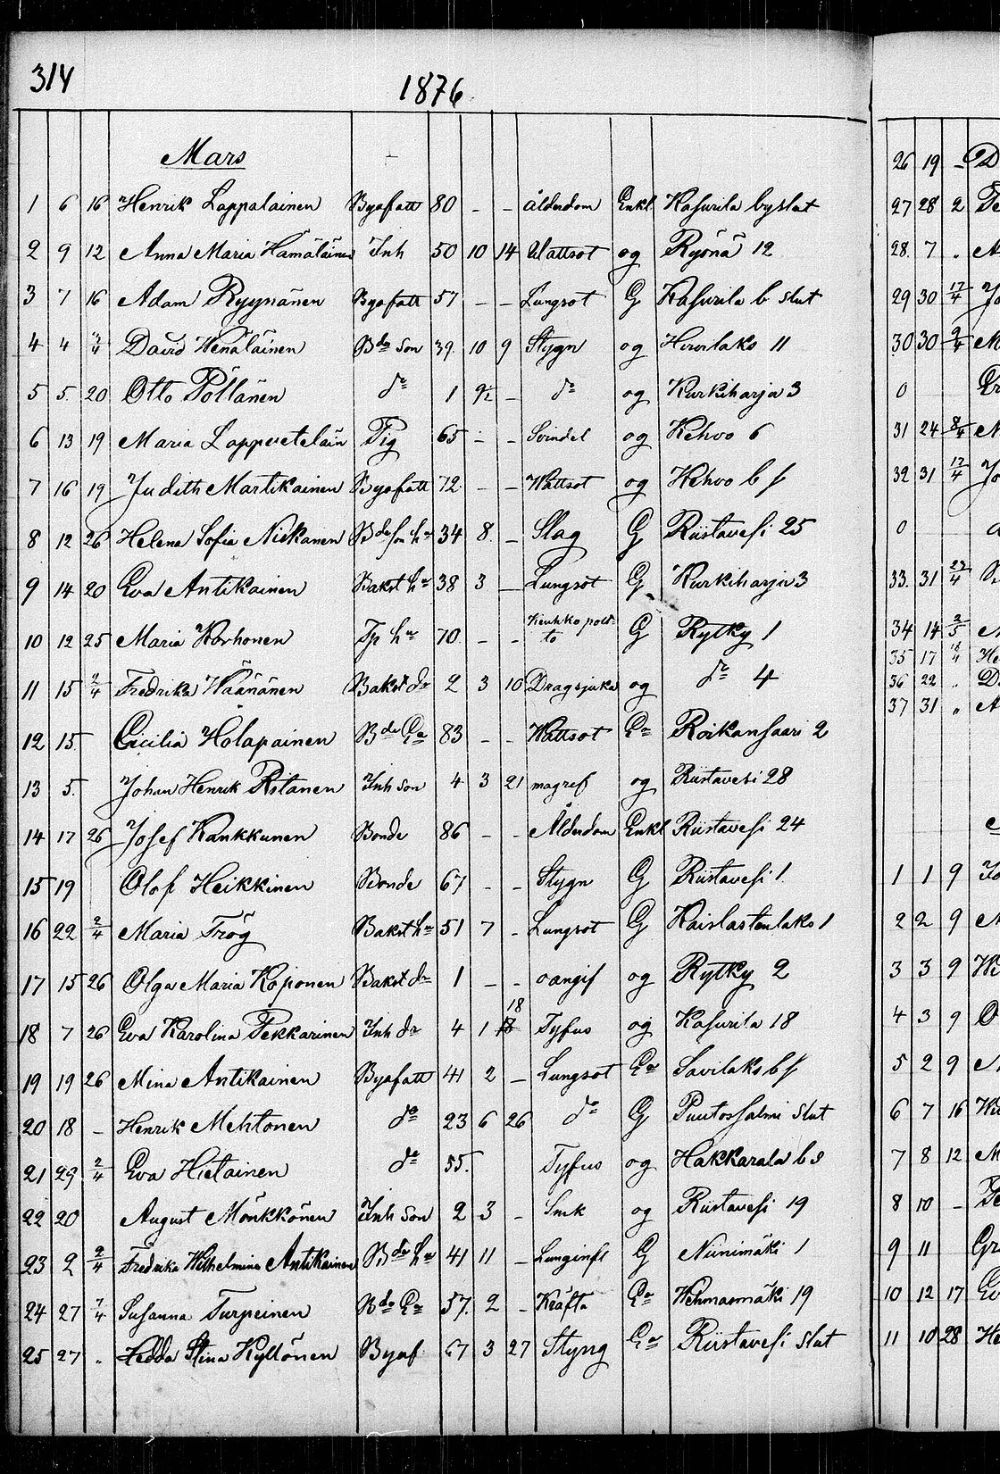 314
1876
Mars
1 6 16 Henrik Lappalainen Byafatt 80 - - ålderdom Enkl Kasurila by slut
2 9 12 Anna Maria Hämäläinen Inh 50 10 14 Wattsot og Ryönä 12
3 7 16 Adam Ryynänen Byafatt 57 - - Lungsot G Kasurila b slut
4 4 3/4 David Wenäläinen Bde son 39 10 9 Stygn og Hirvilaks 11
5 5 20 Otto Pöllänen do 1 9½ - do og Kurkiharju 3
6 13 19 Maria Lappveteläin Pig 65 - - Svindel og Kehvo 6
7 16 19 Judith Martikainen Byafatt 72 - - Wattsot og Kehvo b s
8 12 26 Helena Sofia Niskanen Bde son hu 34 8 - Slag G Riistavesi 25
9 14 20 Eva Antikainen Bakst hu 38 3 - Lungsot G Kurkiharju 3
10 12 25 Maria Korhonen Tp hu 70 - - G Rytky 1
11 15 2/4 Fredrika Wäänänen Bakst dr 2 3 10 Dragsjuka og do 4
12 15 Cicilia Holapainen Bde Ea 83 - - Wattsot Ea Roikansaari 2
13 5 Johan Henrik Ritanen Inh son 4 3 21 magref og Riistavesi 28
14 17 26 Josef Kankkunen Bonde 86 - - Ålderdom Enkl Riistavesi 24
15 19 Olof Heikkinen Bonde 67 - - Stygn G Riistavesi 1
16 22 2/4 Maria Trög Bakst hu 51 7 - Lungsot G Kaislastenlaks 1
17 15 26 Olga Maria Koponen Bakst dr 1 - - oangif og Rytky 2
18 7 26 Eva Karolina Pekkarinen Inh dr 4 1 18 Tyfus og Kasurila 18
19 19 26 Mina Antikainen Byafatt 41 2 - Lungsot Ea Savilaks b s
20 18 - Henrik Mehtonen do 23 6 26 do G Puutossalmi slut
21 29 2/4 Eva Hietainen do 55 Tyfus og Hakkarala b s
22 20 August Mönkkönen Inh son 2 3 - Smk og Riistavesi 19
23 2 2/4 Fredrika Wilhelmina Antikainen Bde hu 41 11 - Lunginfl G Niinimäki 1
24 27 7/4 Susanna Turpeinen Bde Ea 57 2 - Kräfta Ea Wehmasmäki 19
25 27 " Hedda Stina Kyllönen Byaf 67 3 27 Styng Ea Riistavesi slut
26 19 -
27 28 2
28 7 "
29 30 17/4
30 30 2/4
0
31 24 8/4
32 31 17/4
0
33 31 23/4
34 14 2/5
35 17 18/4
36 22 "
37 31 "
1 1 9
2 2 9
3 3 9
4 3 9
5 2 9
6 7 16
7 8 12
8 10 -
9 11
10 12 17
11 10 28